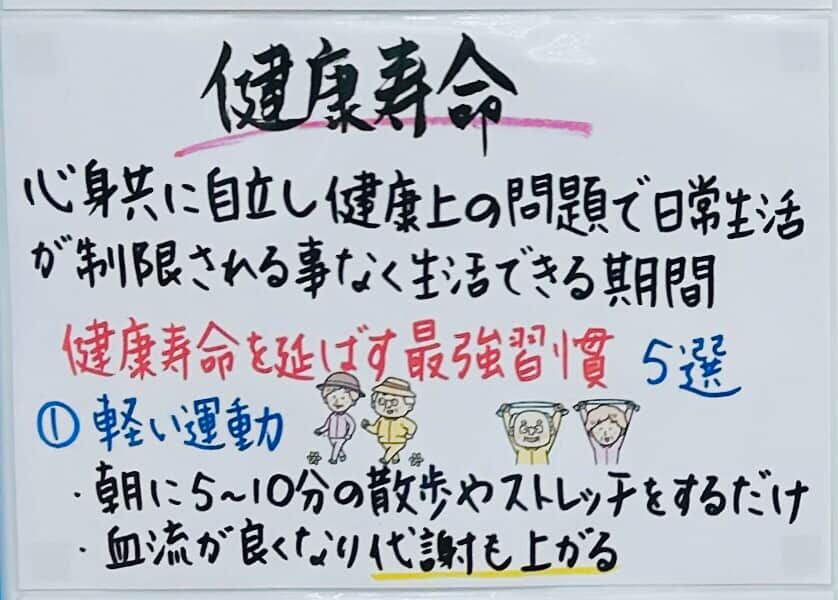 健康寿命
心身共に自立し健康上の問題で日常生活
が制限される事なく生活できる期間
健康寿命を延ばす最強習慣 5選
① 軽い運動
・朝に5~10分の散歩やストレッチをするだけ
・血流が良くなり代謝も上がる